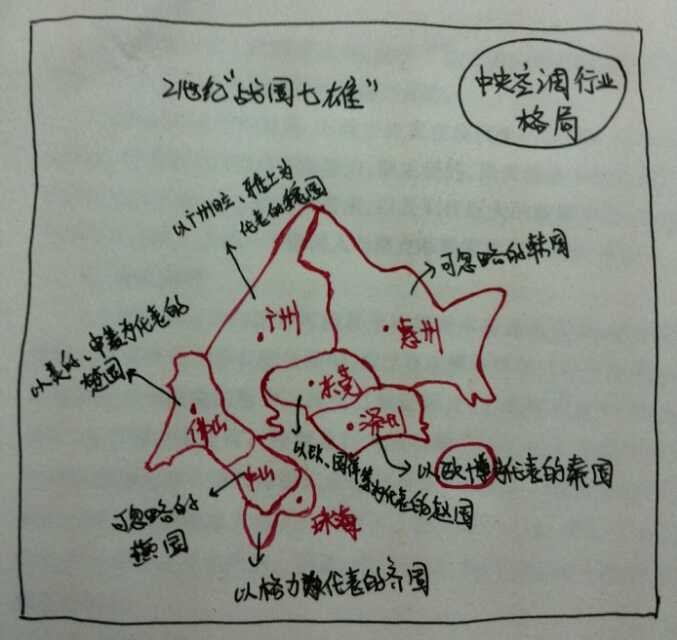 21世纪"战国七雄"
中央空调行业
格局
以广州日立、雅士为
代表的魏国
可忽略的韩国
以美的、申菱为代表的
楚国
广州
惠州
东莞
深圳
佛山
中山
珠海
以欧博为代表的秦国
为代表的赵国
可忽略的
燕国
以格力为代表的齐国